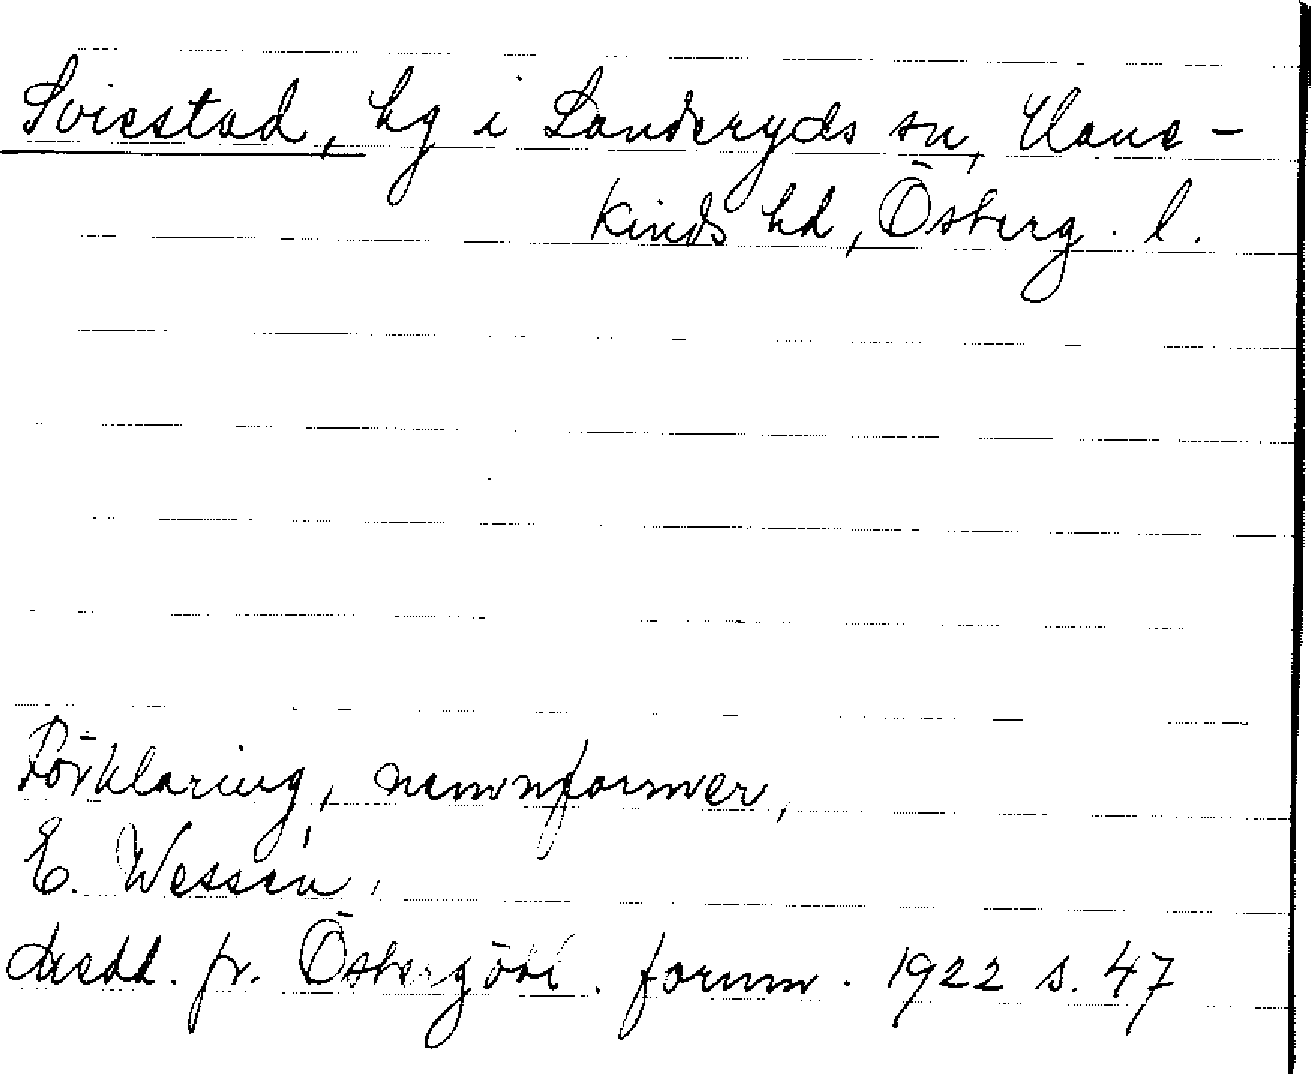 Sviestad, hg i Landeryds sn, Hane-
kinds hd, Österg. l.
Förklaring, namnformer,
E. Wessén,
Medd. fr. Östergötl. fornm. 1922 s. 47